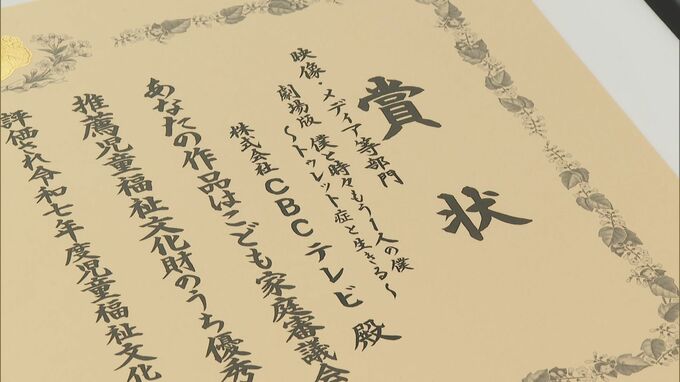 賞状
映像・メディア等部門
劇場版 僕と時々もう1人の僕
～トゥレット症と生きる～
株式会社CBCテレビ 殿
あなたの作品はこども家庭審議会
推薦児童福祉文化財のうち優秀
評価され令和七年度児童福祉文化